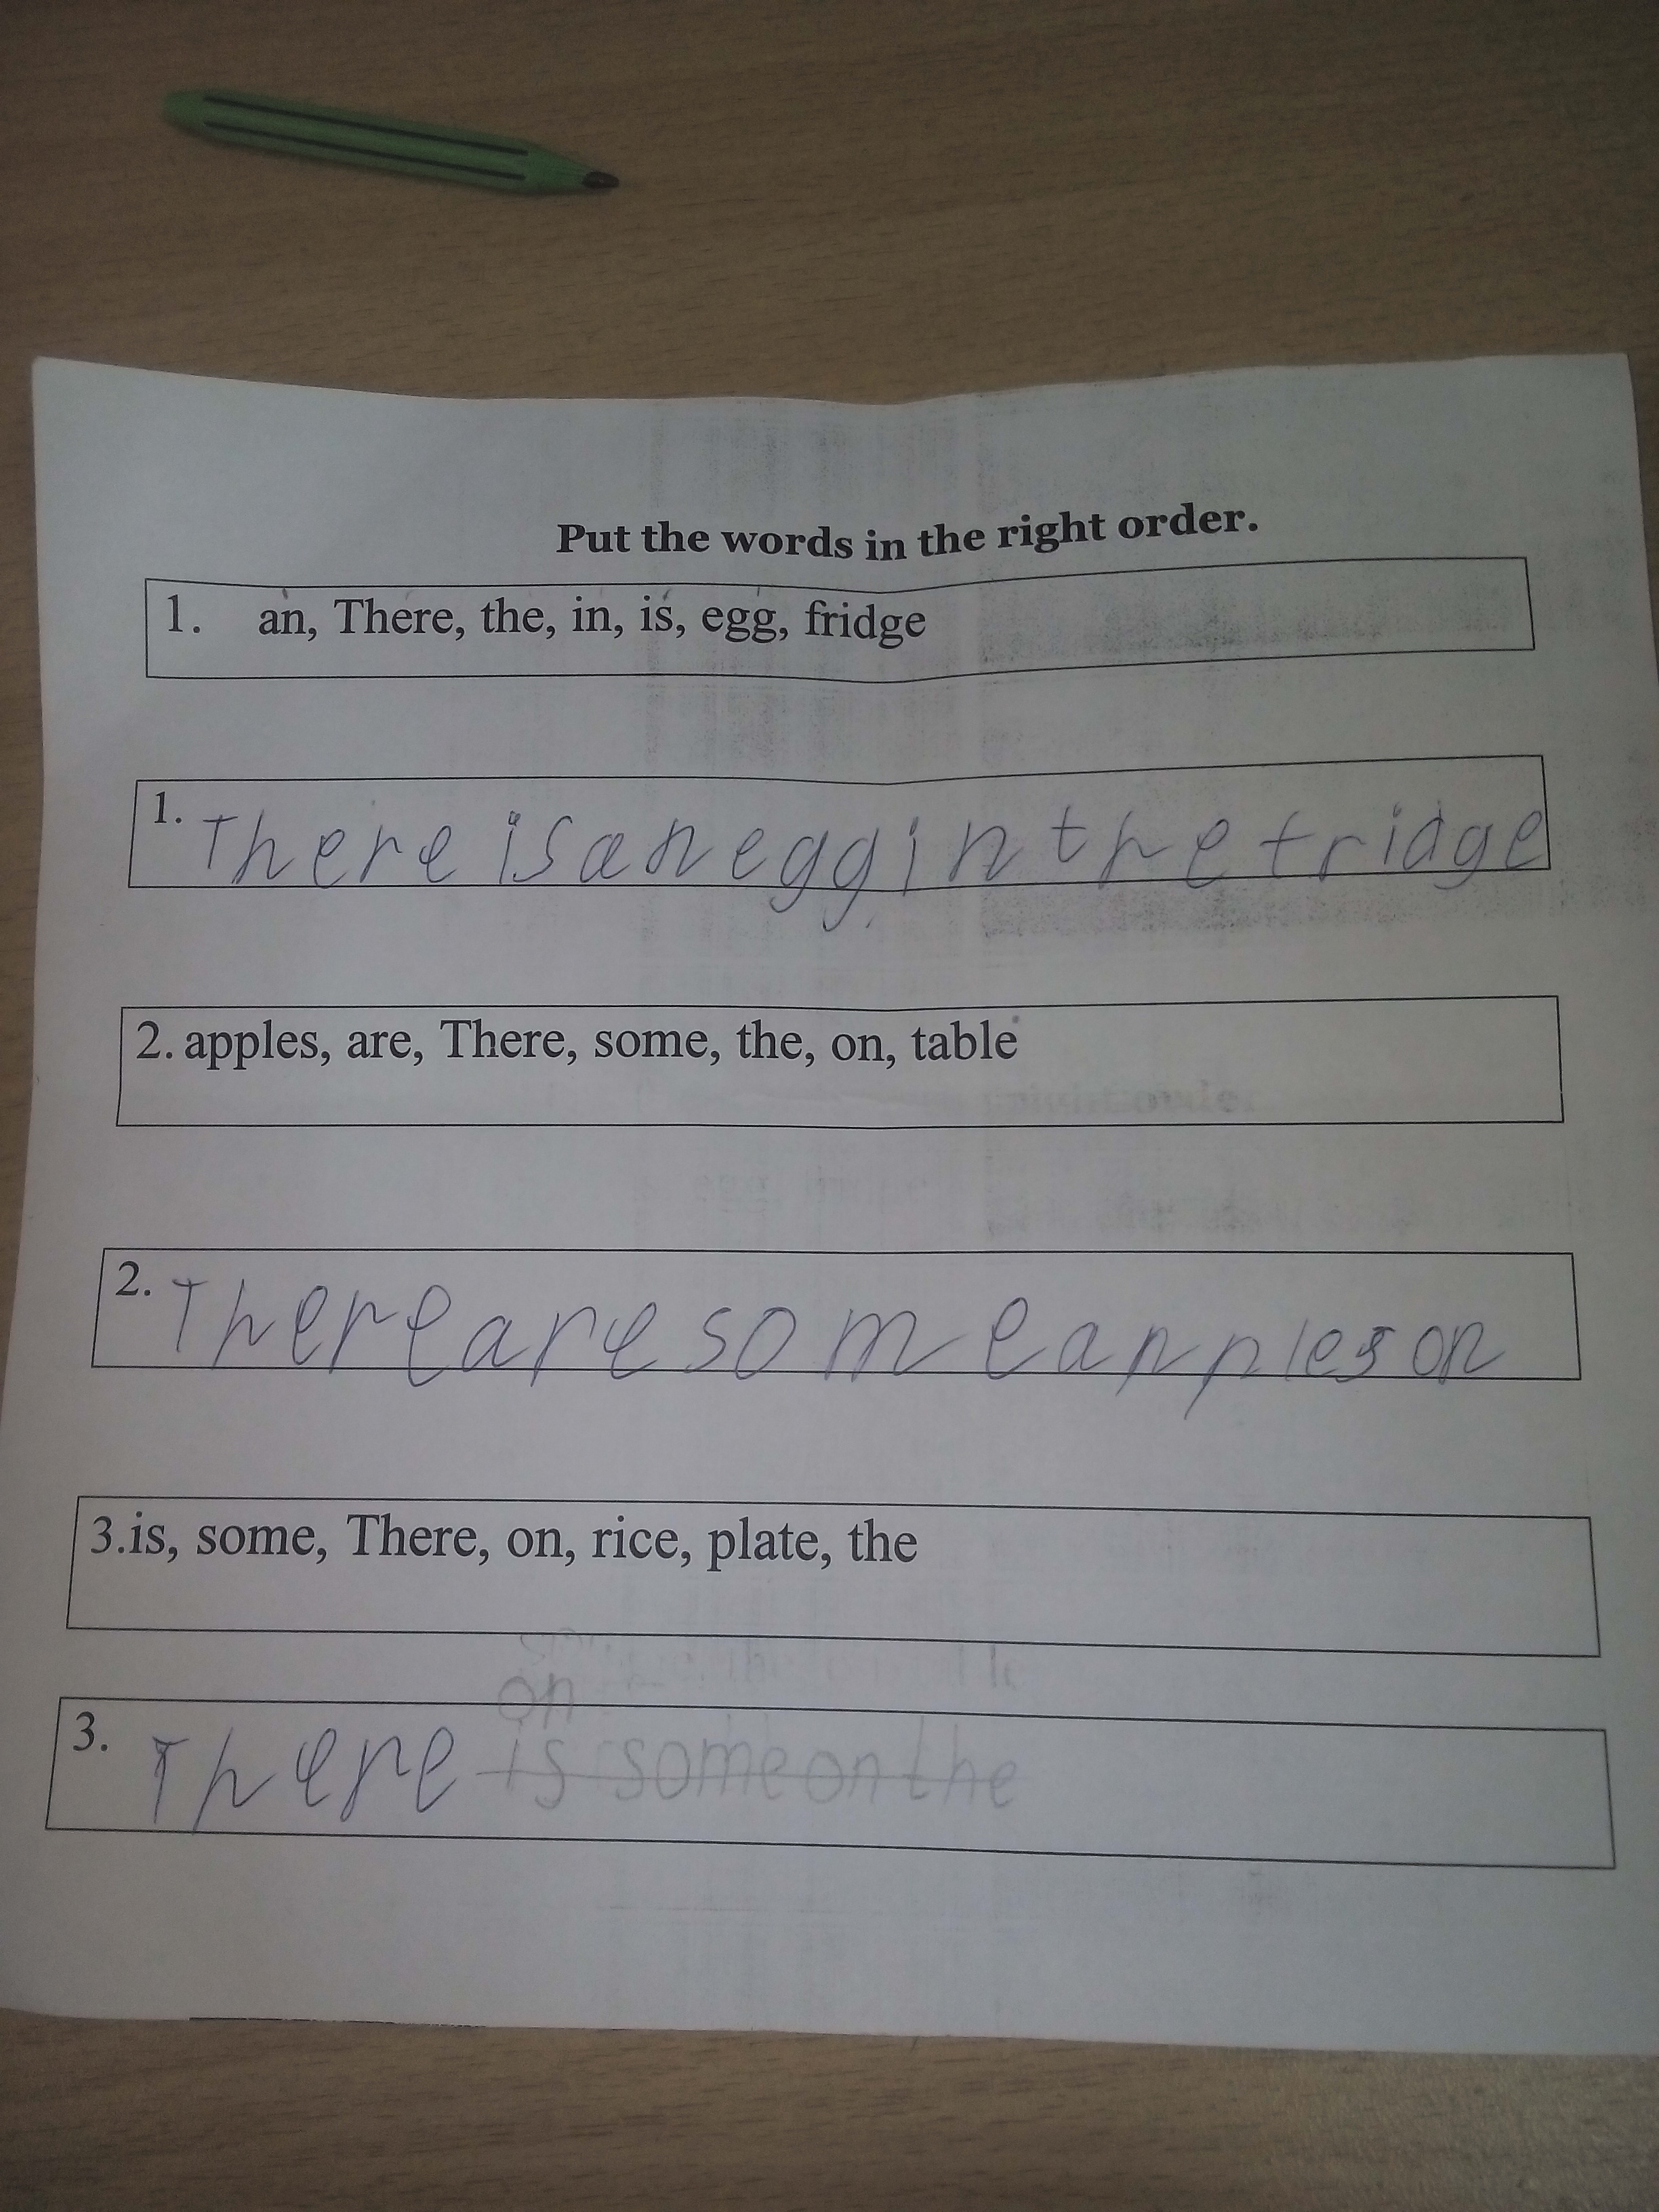 Put the words in the right order.
1. an, There, the, in, is, egg, fridge
1. There is an egg in the fridge
2. apples, are, There, some, the, on, table
2. There are some apples on
3.is, some, There, on, rice, plate, the
on
3. There is some on the